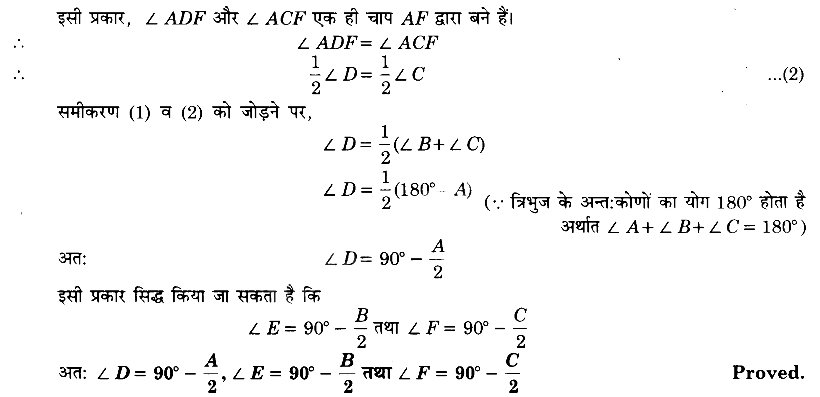 इसी प्रकार, ∠ ADF और ∠ ACF एक ही चाप AF द्वारा बने हैं।
∴ ∠ ADF = ∠ ACF
∴ 1/2 ∠ D = 1/2 ∠ C ...(2)
समीकरण (1) व (2) को जोड़ने पर,
∠ D = 1/2 (∠ B + ∠ C)
∠ D = 1/2 (180° - A) (∵ त्रिभुज के अन्त:कोणों का योग 180° होता है
अर्थात ∠ A + ∠ B + ∠ C = 180°)
अत: ∠ D = 90° − A/2
इसी प्रकार सिद्ध किया जा सकता है कि
∠ E = 90° − B/2 तथा ∠ F = 90° − C/2
अत: ∠ D = 90° − A/2, ∠ E = 90° − B/2 तथा ∠ F = 90° − C/2 Proved.